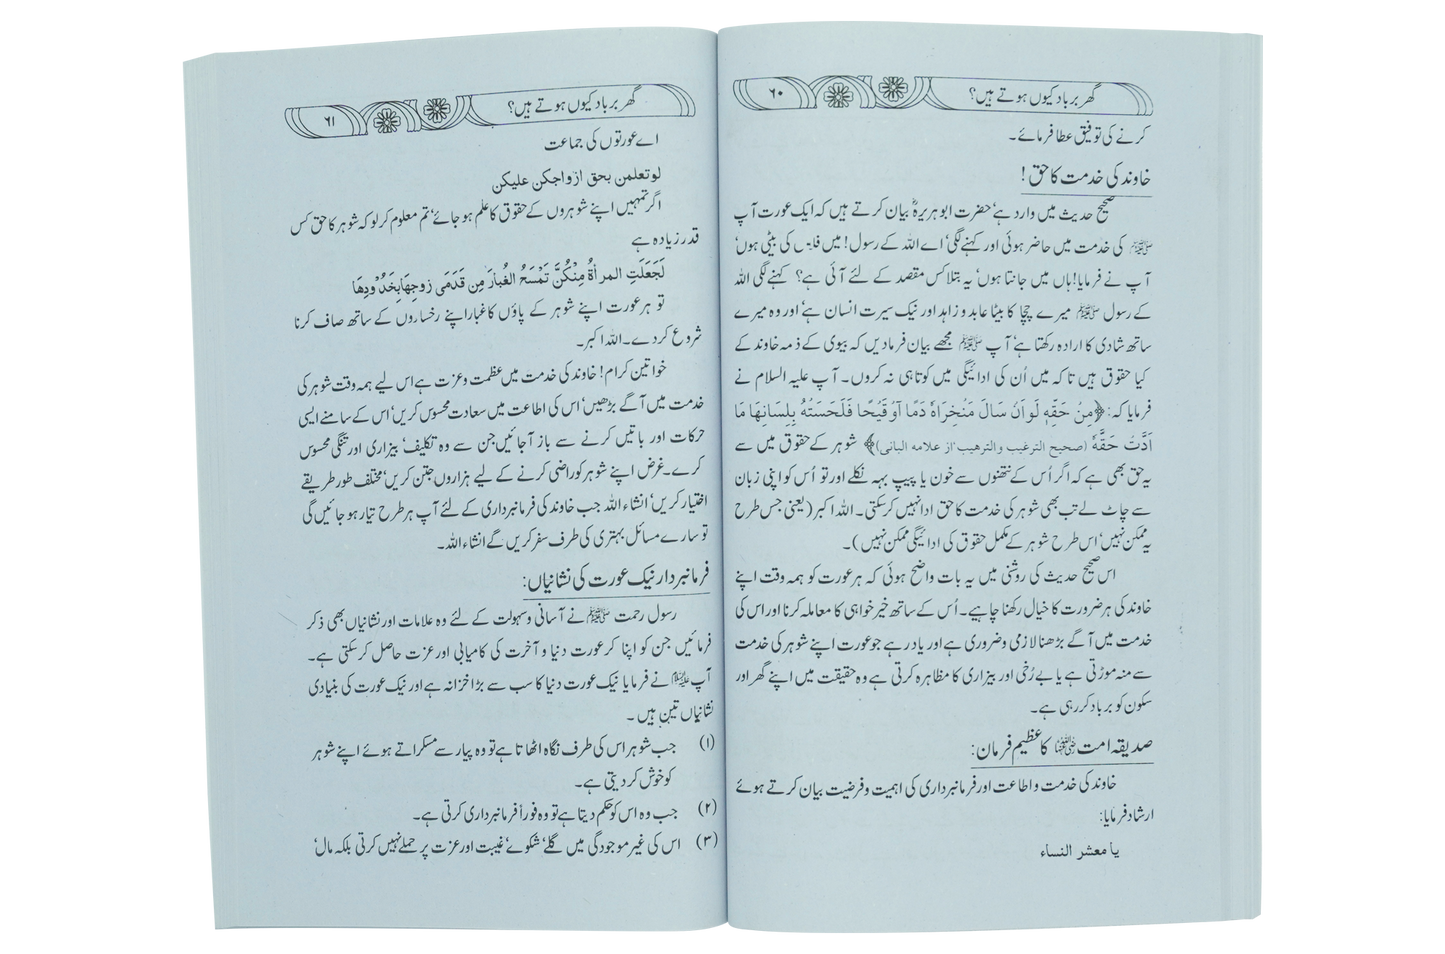 گھر برباد کیوں ہوتے ہیں؟ ۶۰
کرنے کی توفیق عطا فرمائے۔
خاوند کی خدمت کا حق!
صحیح حدیث میں وارد ہے، حضرت ابو ہریرہؓ بیان کرتے ہیں کہ ایک عورت آپ
ﷺ کی خدمت میں حاضر ہوئی اور کہنے لگی، اے اللہ کے رسول! میں فلاں کی بیٹی ہوں،
آپ نے فرمایا! ہاں میں جانتا ہوں، یہ بتلا کس مقصد کے لئے آئی ہے؟ کہنے لگی اللہ
کے رسول ﷺ میرے چچا کا بیٹا عابد و زاہد اور نیک سیرت انسان ہے، اور وہ میرے
ساتھ شادی کا ارادہ رکھتا ہے، آپ ﷺ مجھے بیان فرما دیں کہ بیوی کے ذمہ خاوند کے
کیا حقوق ہیں تا کہ میں اُن کی ادائیگی میں کوتاہی نہ کروں۔ آپ علیہ السلام نے
فرمایا کہ: ﴿مِنْ حَقِّهٖ لَوْ اَنْ سَالَ مَنْخِرَاهُ دَمًا اَوْ قَيْحًا فَلَحَسَتْهُ بِلِسَانِهَا مَا
اَدَّتْ حَقَّهٗ (صحیح الترغیب والترهیب از علامہ البانی)﴾ شوہر کے حقوق میں سے
یہ حق بھی ہے کہ اگر اُس کے نتھنوں سے خون یا پیپ بہہ نکلے اور تو اُس کو اپنی زبان
سے چاٹ لے تب بھی شوہر کی خدمت کا حق ادا نہیں کر سکتی۔ اللہ اکبر (یعنی جس طرح
یہ ممکن نہیں، اس طرح شوہر کے مکمل حقوق کی ادائیگی ممکن نہیں)۔
اس صحیح حدیث کی روشنی میں یہ بات واضح ہوئی کہ ہر عورت کو ہمہ وقت اپنے
خاوند کی ہر ضرورت کا خیال رکھنا چاہیے۔ اُس کے ساتھ خیر خواہی کا معاملہ کرنا اور اس کی
خدمت میں آگے بڑھنا لازمی و ضروری ہے اور یاد رہے جو عورت اپنے شوہر کی خدمت
سے منہ موڑتی ہے یا بے رُخی اور بیزاری کا مظاہرہ کرتی ہے وہ حقیقت میں اپنے گھر اور
سکون کو برباد کر رہی ہے۔
صدیقہ امت رضی اللہ عنہا کا عظیم فرمان:
خاوند کی خدمت و اطاعت اور فرمانبرداری کی اہمیت و فرضیت بیان کرتے ہوئے
ارشاد فرمایا:
یا معشر النساء
گھر برباد کیوں ہوتے ہیں؟ ۶۱
اے عورتوں کی جماعت
لو تعلمن بحق ازواجکن علیکن
اگر تمہیں اپنے شوہروں کے حقوق کا علم ہو جائے، تم معلوم کر لو کہ شوہر کا حق کس
قدر زیادہ ہے
لَجَعَلَتِ المرأةُ مِنْكُنَّ تَمْسَحُ الغُبارَ مِن قَدَمَى زوجِهَا بِخَدُوْدِهَا
تو ہر عورت اپنے شوہر کے پاؤں کا غبار اپنے رخساروں کے ساتھ صاف کرنا
شروع کر دے۔ اللہ اکبر۔
خواتین کرام! خاوند کی خدمت میں عظمت و عزت ہے اس لیے ہمہ وقت شوہر کی
خدمت میں آگے بڑھیں، اس کی اطاعت میں سعادت محسوس کریں، اس کے سامنے ایسی
حرکات اور باتیں کرنے سے باز آ جائیں جن سے وہ تکلیف، بیزاری اور تنگی محسوس
کرے۔ غرض اپنے شوہر کو راضی کرنے کے لیے ہزاروں جتن کریں، مختلف طور طریقے
اختیار کریں، انشاء اللہ جب خاوند کی فرمانبرداری کے لئے آپ ہر طرح تیار ہو جائیں گی
تو سارے مسائل بہتری کی طرف سفر کریں گے انشاء اللہ۔
فرمانبردار نیک عورت کی نشانیاں:
رسول رحمت ﷺ نے آسانی و سہولت کے لئے وہ علامات اور نشانیاں بھی ذکر
فرمائیں جن کو اپنا کر عورت دنیا و آخرت کی کامیابی اور عزت حاصل کر سکتی ہے۔
آپ ﷺ نے فرمایا نیک عورت دنیا کا سب سے بڑا خزانہ ہے اور نیک عورت کی بنیادی
نشانیاں تین ہیں۔
(۱) جب شوہر اس کی طرف نگاہ اٹھاتا ہے تو وہ پیار سے مسکراتے ہوئے اپنے شوہر
کو خوش کر دیتی ہے۔
(۲) جب وہ اس کو حکم دیتا ہے تو وہ فوراً فرمانبرداری کرتی ہے۔
(۳) اس کی غیر موجودگی میں گلے، شکوے، غیبت اور عزت پر حملے نہیں کرتی بلکہ مال،